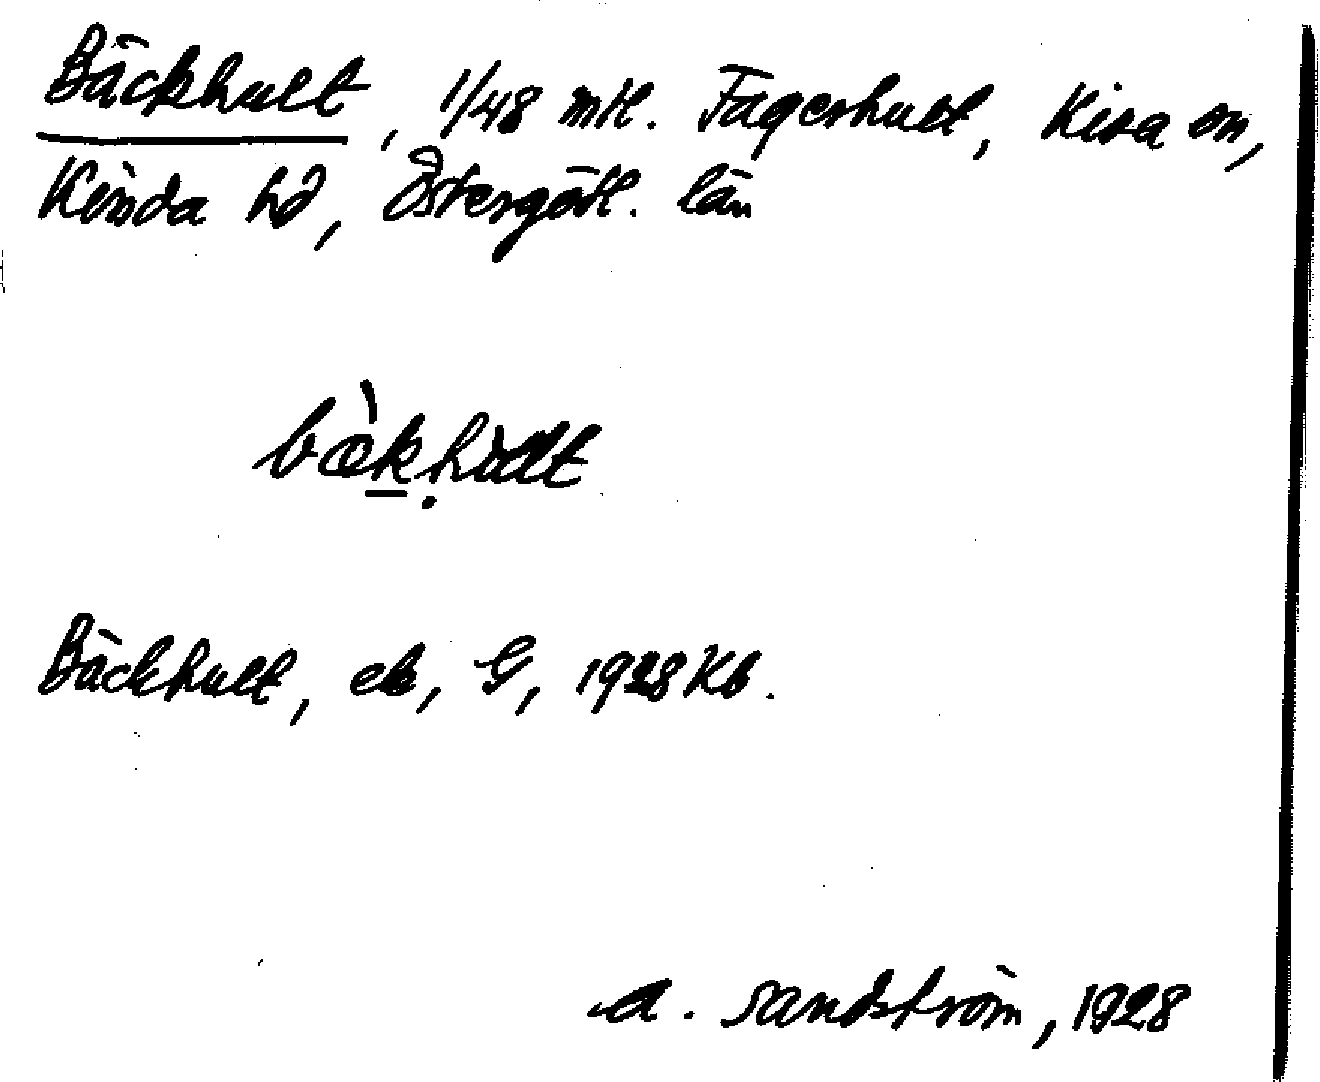 Bäckhult, 1/48 mtl. Fagerhult, Kisa sn,
Kinda hd, Östergötl. län
bæ̀k.hult
Bäckhult, eb, G, 1928 Kb.
A. Sandström, 1928